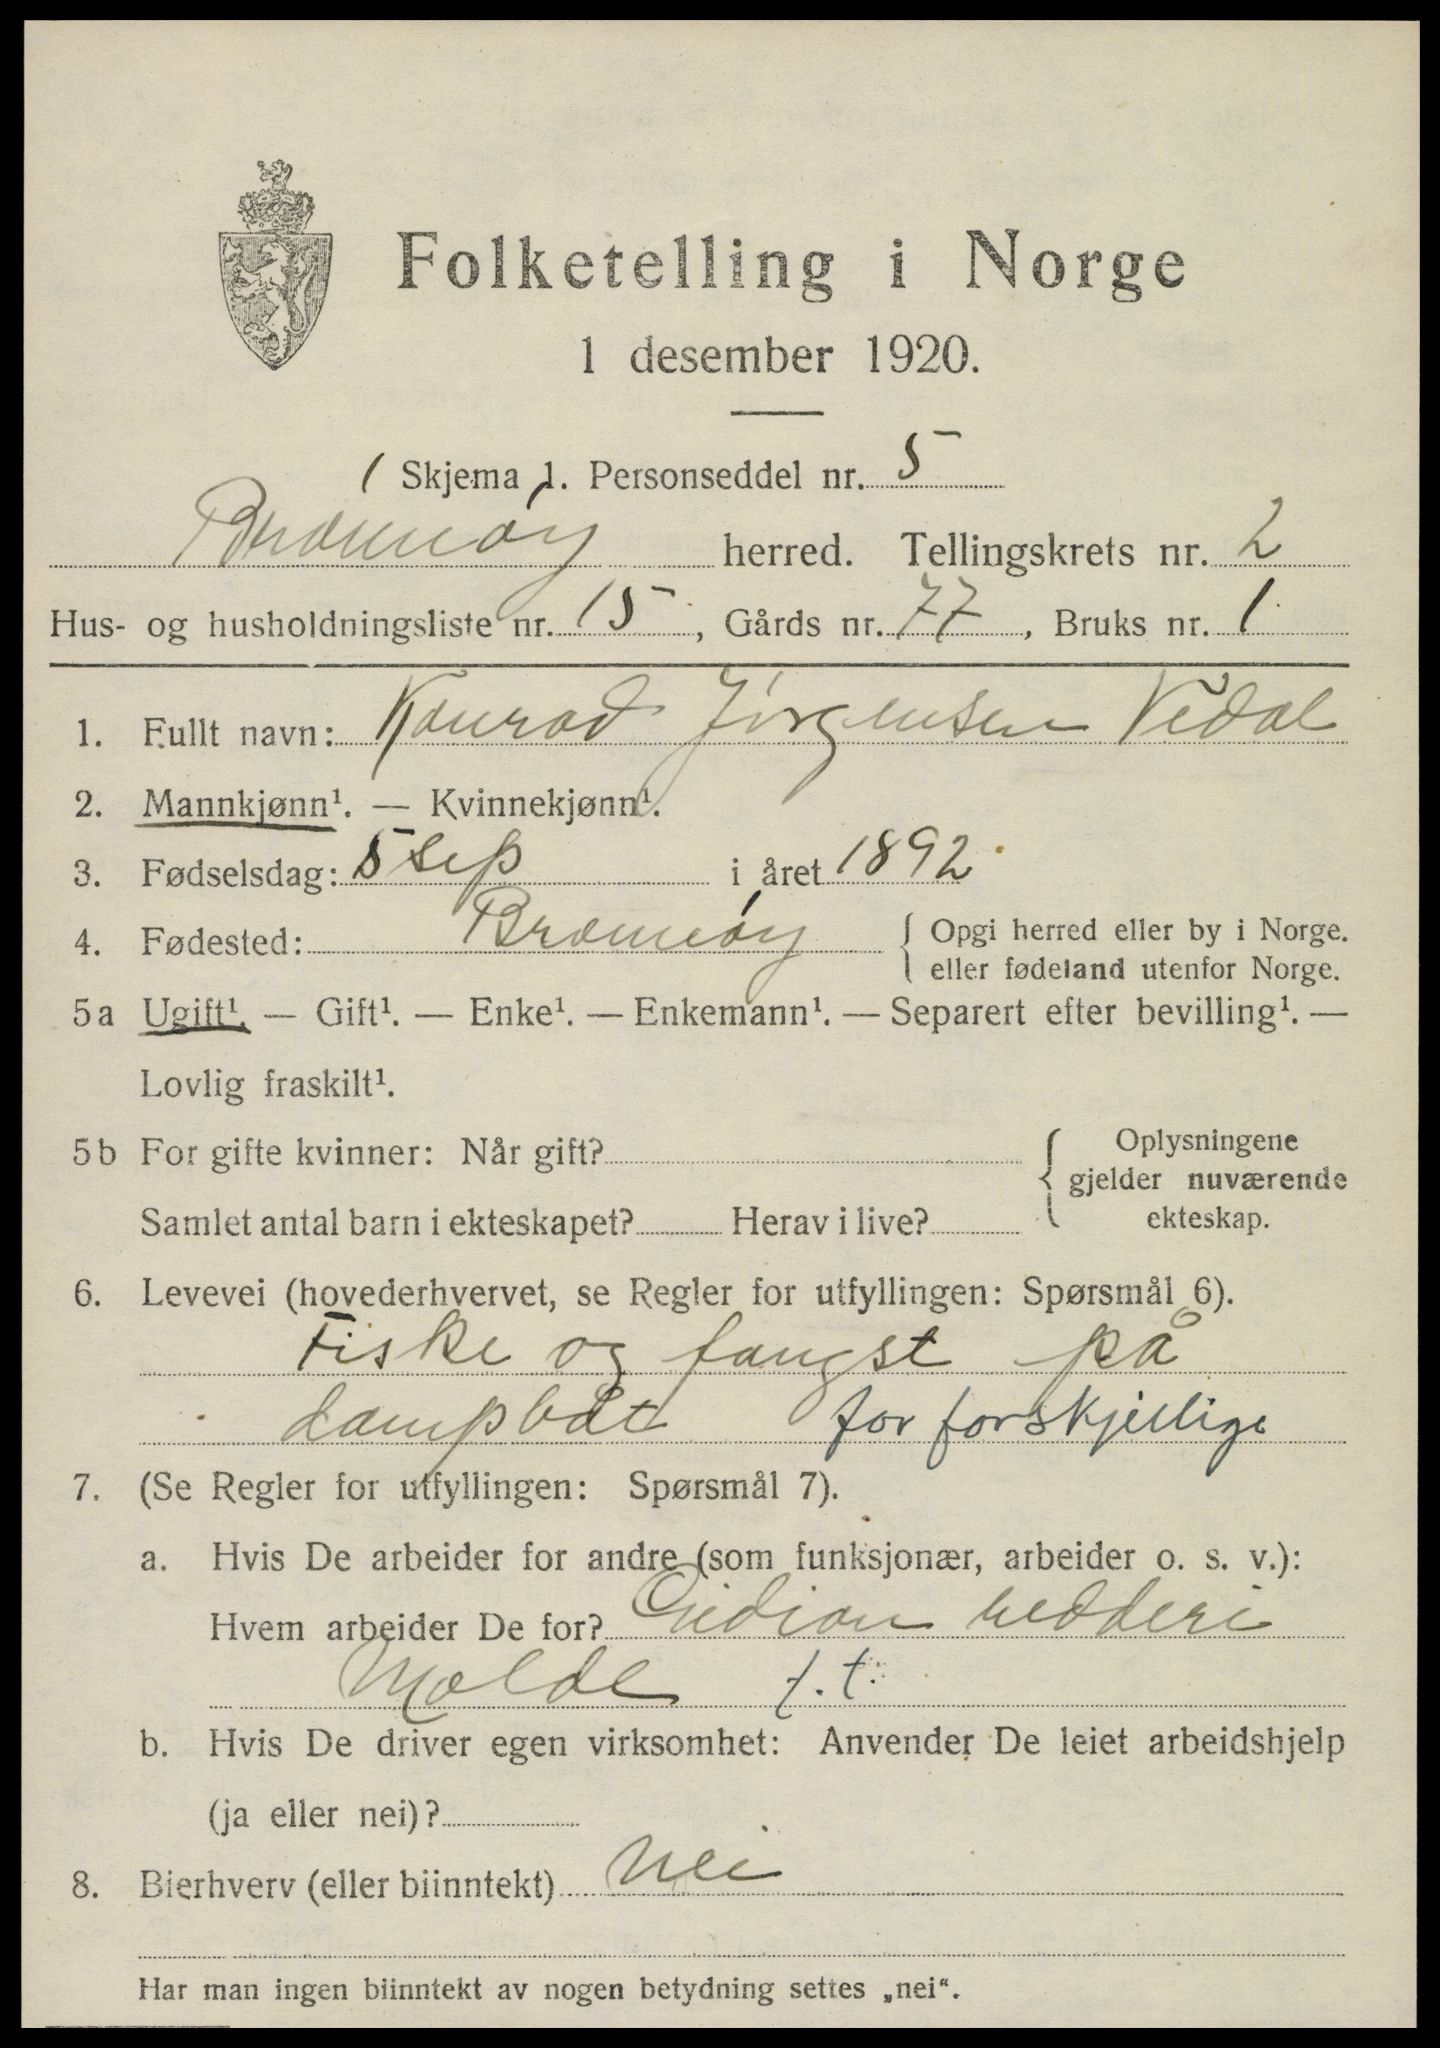 Folketelling i Norge
1 desember 1920.
1 Skjema 1. Personseddel nr. 5
Brønnøy herred. Tellingskrets nr. 2
Hus- og husholdningsliste nr. 15, Gårds nr. 77, Bruks nr. 1
1. Fullt navn: Konrad Jørgensen Vedal
2. Mannkjønn¹. — Kvinnekjønn¹.
3. Fødselsdag: 5 sep i året 1892
4. Fødested: Brønnøy { Opgi herred eller by i Norge.
eller fødeland utenfor Norge.
5a Ugift¹. — Gift¹. — Enke¹. — Enkemann¹. — Separert efter bevilling¹. —
Lovlig fraskilt¹.
5b For gifte kvinner: Når gift? { Oplysningene
gjelder nuværende
Samlet antal barn i ekteskapet? Herav i live? ekteskap.
6. Levevei (hovederhvervet, se Regler for utfyllingen: Spørsmål 6).
Fiske og fangst på
dampbåt for forskjellige
7. (Se Regler for utfyllingen: Spørsmål 7).
a. Hvis De arbeider for andre (som funksjonær, arbeider o. s. v.):
Hvem arbeider De for? redderi
Molde f. t.
b. Hvis De driver egen virksomhet: Anvender De leiet arbeidshjelp
(ja eller nei)?
8. Bierhverv (eller biinntekt) Nei
Har man ingen biinntekt av nogen betydning settes „nei“.